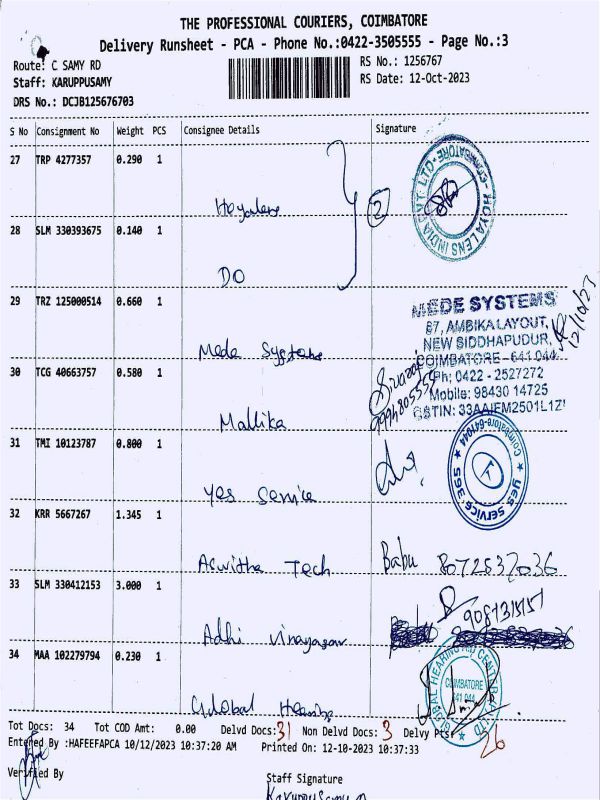 THE PROFESSIONAL COURIERS, COIMBATORE
Delivery Runsheet - PCA - Phone No.:0422-3505555 - Page No.:3
Route: C SAMY RD
RS No.: 1256767
Staff: KARUPPUSAMY
RS Date: 12-Oct-2023
DRS No.: DCJB125676703
S No Consignment No Weight PCS Consignee Details Signature
27 TRP 4277357 0.290 1
Hoyalens
2
HOYA LENS INDIA PVT. LTD. COIMBATORE
28 SLM 330393675 0.140 1
DO
29 TRZ 125000514 0.660 1
Mede Systems
MEDE SYSTEMS
67, AMBIKA LAYOUT,
NEW SIDDHAPUDUR,
COIMBATORE - 641 044
Ph: 0422 - 2527272
Mobile: 98430 14725
GSTIN: 33AAIFM2501L1Z
12/10/23
30 TCG 40663757 0.580 1
Mallika
31 TMI 10123787 0.800 1
Yes Service
YES SERVICE 365 Coimbatore-641044
32 KRR 5667267 1.345 1
Aswitha Tech
Babu 8072637036
33 SLM 330412153 3.000 1
Adhi Vinayagar
34 MAA 102279794 0.230 1
Global Hearing
GLOBAL HEARING AID CENTER
COIMBATORE
641 044
Tot Docs: 34 Tot COD Amt: 0.00 Delvd Docs: 31 Non Delvd Docs: 3 Delvy Pts: 26
Entered By :HAFEEFAPCA 10/12/2023 10:37:20 AM Printed On: 12-10-2023 10:37:33
Verified By
Staff Signature
Karuppusamy